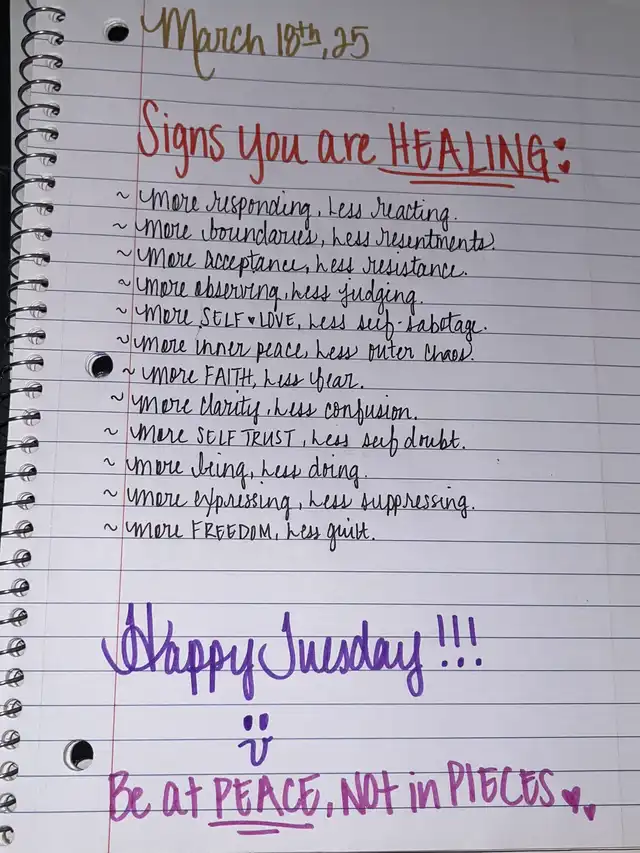 March 18th, 25
Signs you are HEALING:
~ more responding, less reacting.
~ more boundaries, less resentments.
~ more acceptance, less resistance.
~ more observing, less judging.
~ more SELF♥LOVE, less self-sabotage.
~ more inner peace, less outer chaos.
~ more FAITH, less fear.
~ more clarity, less confusion.
~ more SELF TRUST, less self doubt.
~ more being, less doing.
~ more expressing, less suppressing.
~ more FREEDOM, less guilt.
Happy Tuesday!!!
Be at PEACE, NOT in PIECES ♥♥